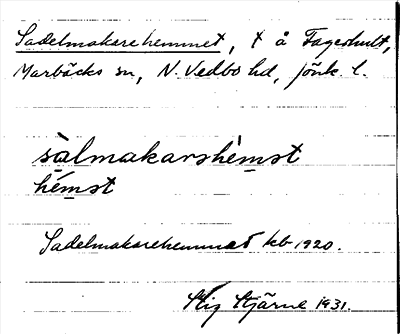 Sadelmakarehemmet, t å Fagerhult,
Marbäcks sn, N. Vedbo hd, Jönk. l.
sàlmakarshèmst
hémst
Sadelmakarehemmet kb 1920.
Stig Stjärne 1931.